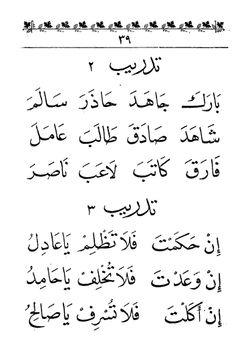 ٣٩
تدريب ٢
بَارَكَ جَاهَدَ حَاذَرَ سَالَمَ
شَاهَدَ صَادَقَ طَالَبَ عَامَلَ
فَارَقَ كَاتَبَ لَاعَبَ نَاصَرَ
تدريب ٣
إِنْ حَكَمْتَ فَلَا تَظْلِمْ يَا عَادِلُ
إِنْ وَعَدْتَ فَلَا تُخْلِفْ يَا حَامِدُ
إِنْ أَكَلْتَ فَلَا تُسْرِفْ يَا صَالِحُ